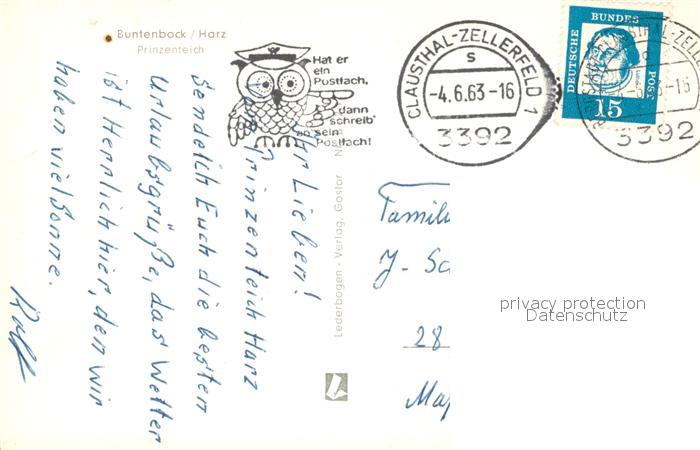 Buntenbock / Harz
Prinzenteich
Hat er
ein
Postfach,
dann
schreib'
an sein
Postfach!
CLAUSTHAL-ZELLERFELD 1
s
-4.6.63-16
3392
DEUTSCHE BUNDES POST
15
3392
Lieben!
Prinzenteich Harz
Sendeich Euch die besten
Urlaubsgrüße, das Wetter
ist Herrlich hier, den wir
haben viel Sonne.
Rolf
Lederbogen - Verlag, Goslar
Famili
J- Sc
28
privacy protection
Datenschutz